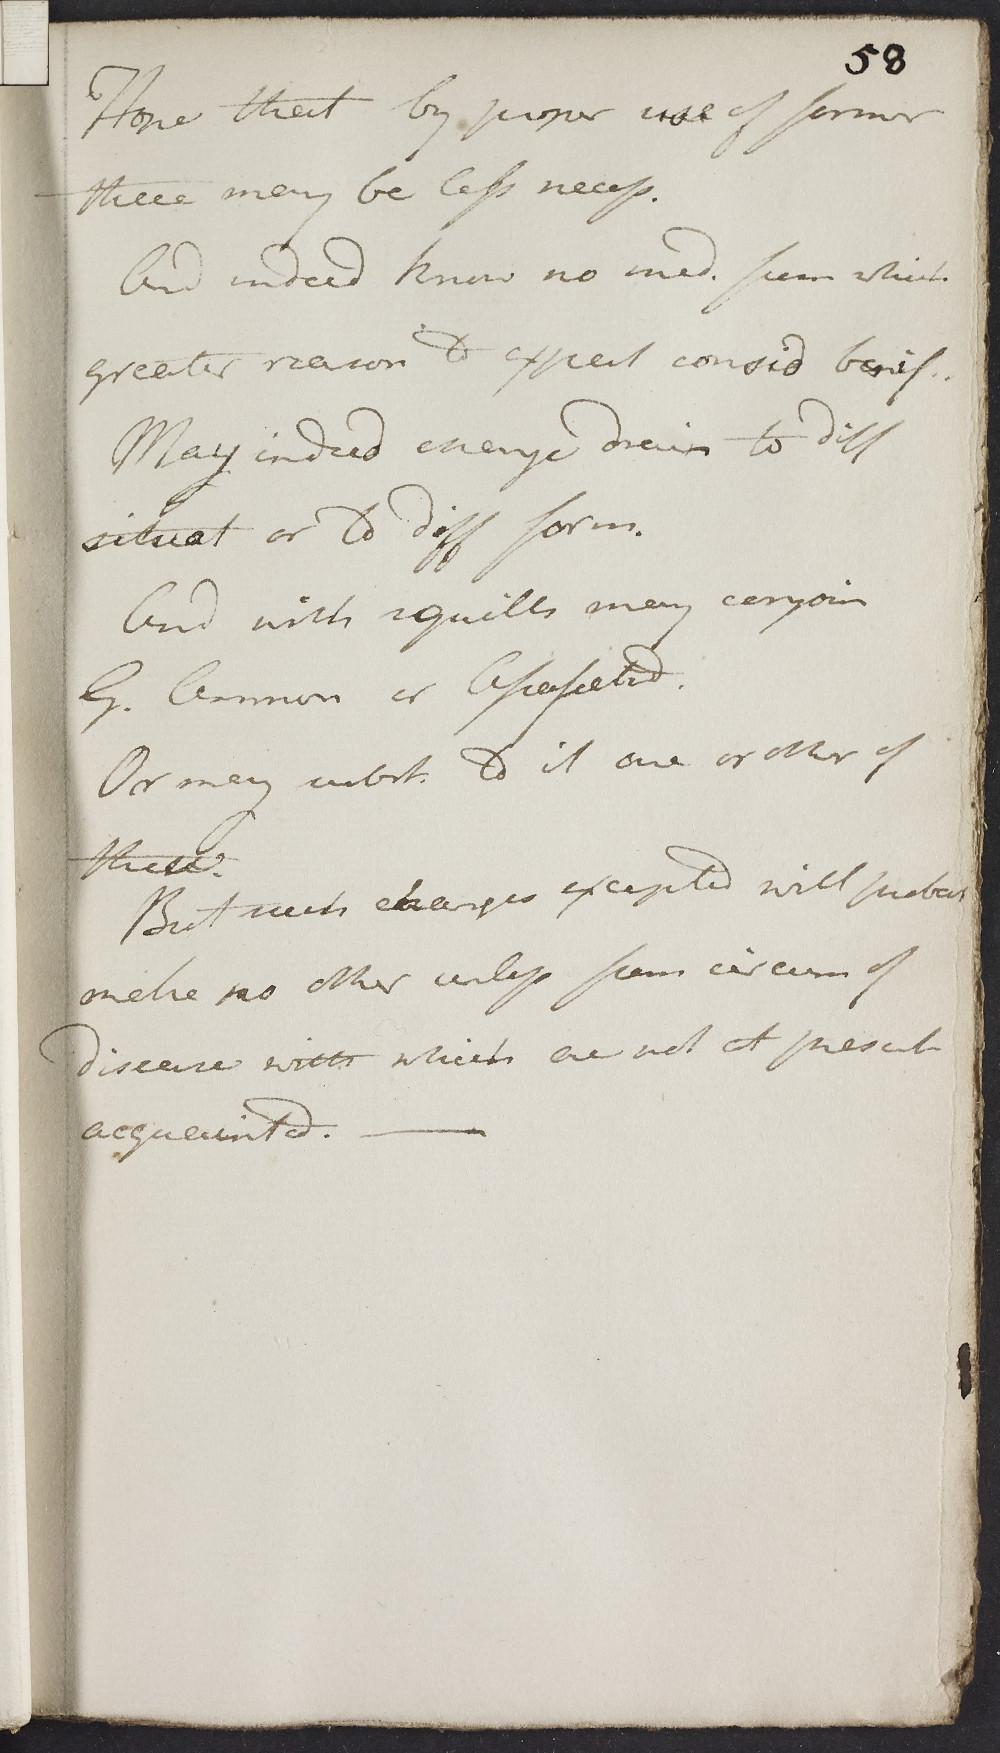 58
Hope that by proper use of former
these may be less necess.
And indeed know no med. from which
greater reason to expect consid benef..
May indeed change drain to diff
situat or to diff form.
And with squills may conjoin
G. Ammon or Assafetid.
Or may subst. to it one or other of
these.
But such changes excepted will probab
make no other unless from circum of
disease with which are not at present
acquainted. —